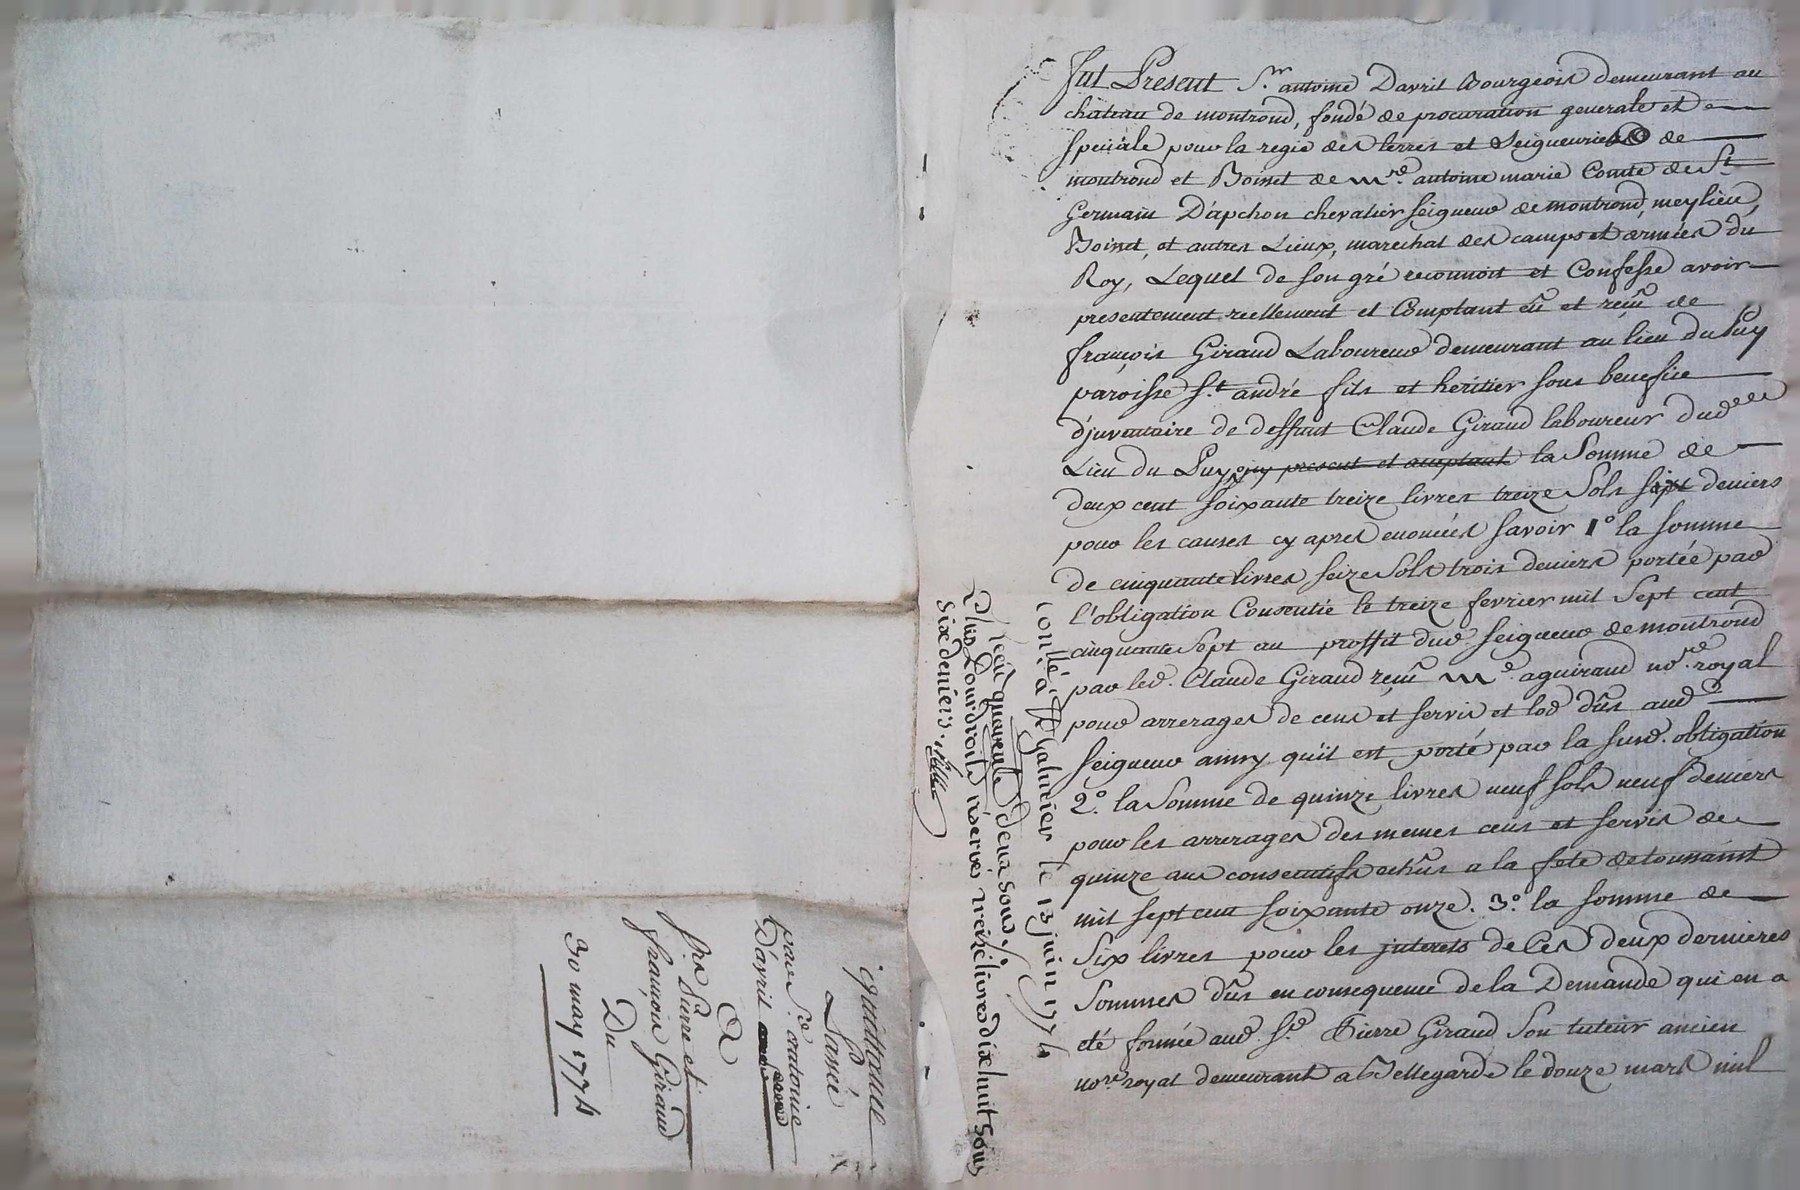 fut Present Sr. antoine Davril Bourgeois demeurant au
chateau de montrond, fondé de procuration generale et
speciale pour la regie des terres et Seigneuries de
montrond et Boisset de mre. antoine marie Comte de St.
Germain D'apchon chevalier seigneur de montrond, meylieu,
Boisset, et autres Lieux, marechal des camps et armées du
Roy, Lequel de son gré reconnoit et Confesse avoir
presentement reellement et Comptant eû et reçû de
françois Giraud Laboureur demeurant au lieu du Puy
paroisse St. andré fils et heritier sous benefice
d'juventaire de deffunt Claude Giraud laboureur dud.
Lieu du Puy jcy present et acceptant la Somme de
deux cent soixante treize livres treize Sols sept deniers
pour les causes cy apres enoncées savoir 1° la somme
de cinquante livres seize Sols trois deniers portée par
l'obligation Consentie le treize fevrier mil Sept cent
cinquante Sept au proffit dud. seigneur de montrond
par led. Claude Giraud reçû me. aguiraud nore. royal
pour arrerages de cens et servis et lod dûs aud.
seigneur ainsy qu'il est porté par la susd. obligation
2°. la Somme de quinze livres neuf sols neuf deniers
pour les arrerages des memes cens et servis de
quinze ans consecutifs echûs a la fete de toussaint
mil sept cent soixante onze. 3°. la somme de
Six livres pour les juterets de Ces deux dernieres
Sommes dûs en consequence de la Demande qui en a
été formée aud. Sr. Pierre Giraud Son tuteur ancien
nore. royal demeurant a Bellegarde le douze mars mil
Conllé à St Galmier le 13 juin 1774
Recu quarante deux Sous
Plus Pour droits réservés treize livres dix huit Sous
Six deniers.
quittance
Passée
par Sr. antoine
D'avril
A
Sre Pierre et
françois Giraud
Du
30 may 1774